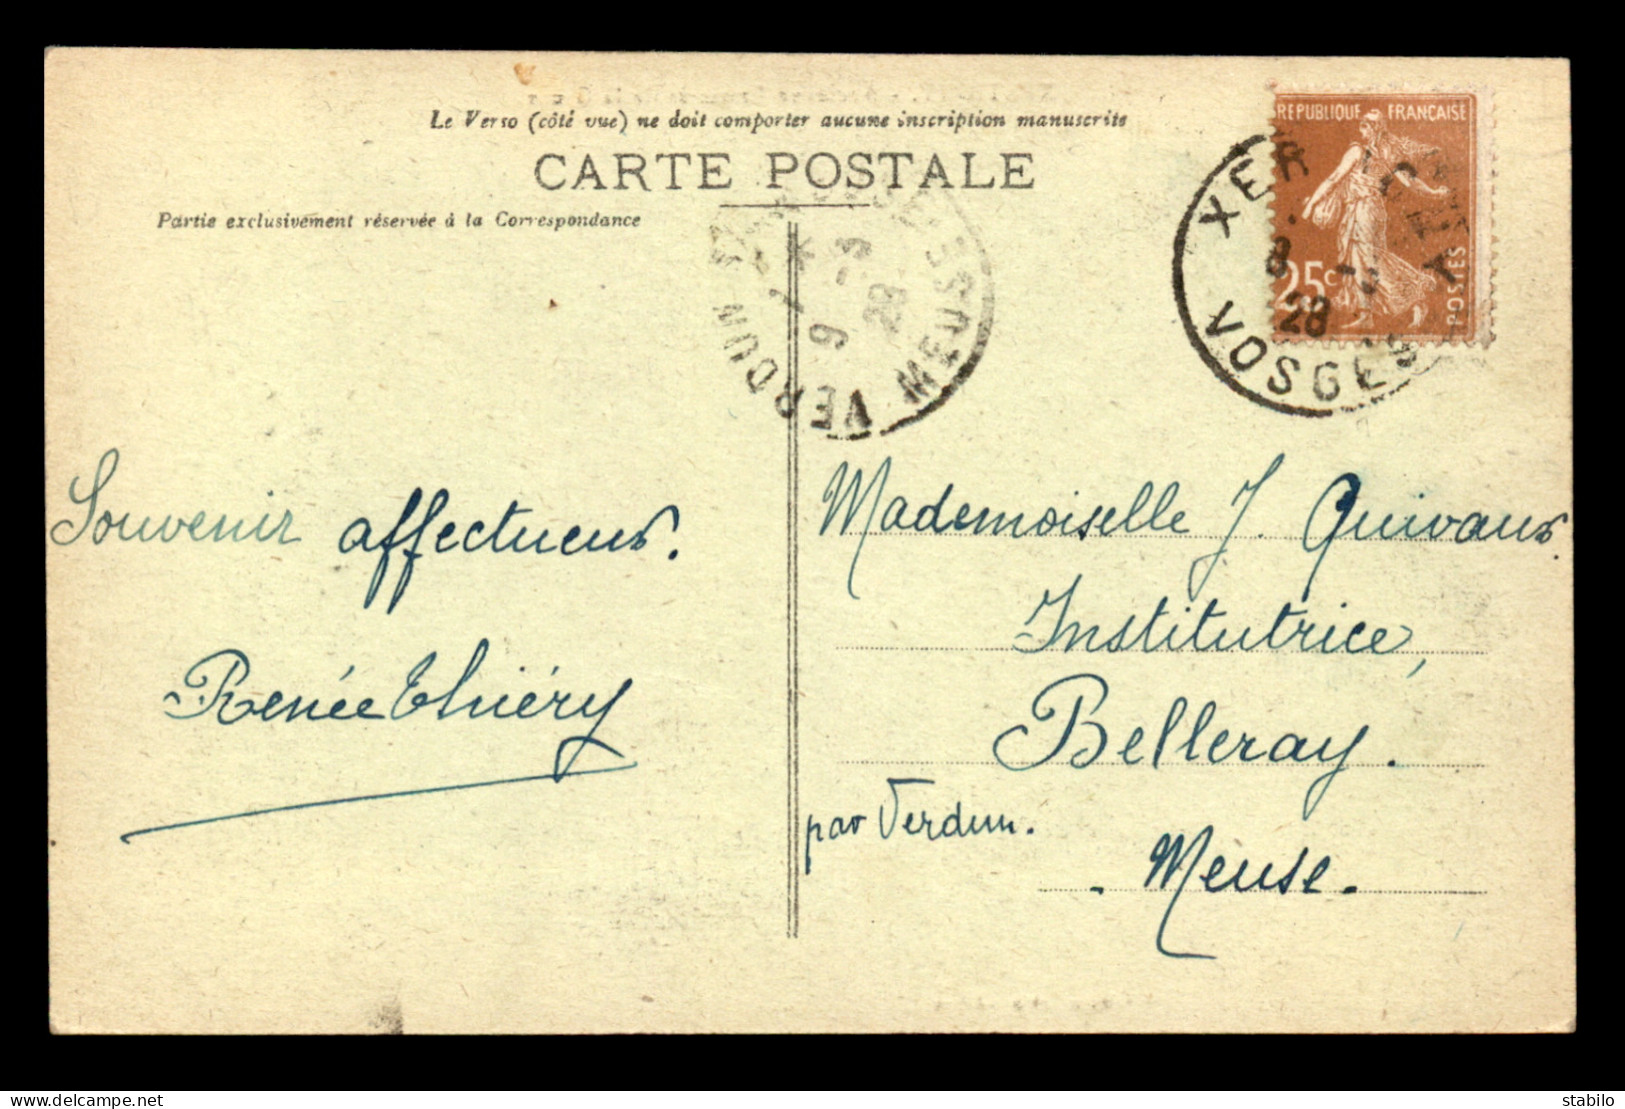 Le Verso (côté vue) ne doit comporter aucune inscription manuscrite
CARTE POSTALE
Partie exclusivement réservée à la Correspondance
REPUBLIQUE FRANÇAISE
25c
POSTES
XER
8
28
VOSGES
VERDUN
MEUSE
9 -3
28
Souvenir affectueux.
Renée Thiéry
Mademoiselle J. Quivaux.
Institutrice,
Belleray.
par Verdun.
- Meuse.
stabilo